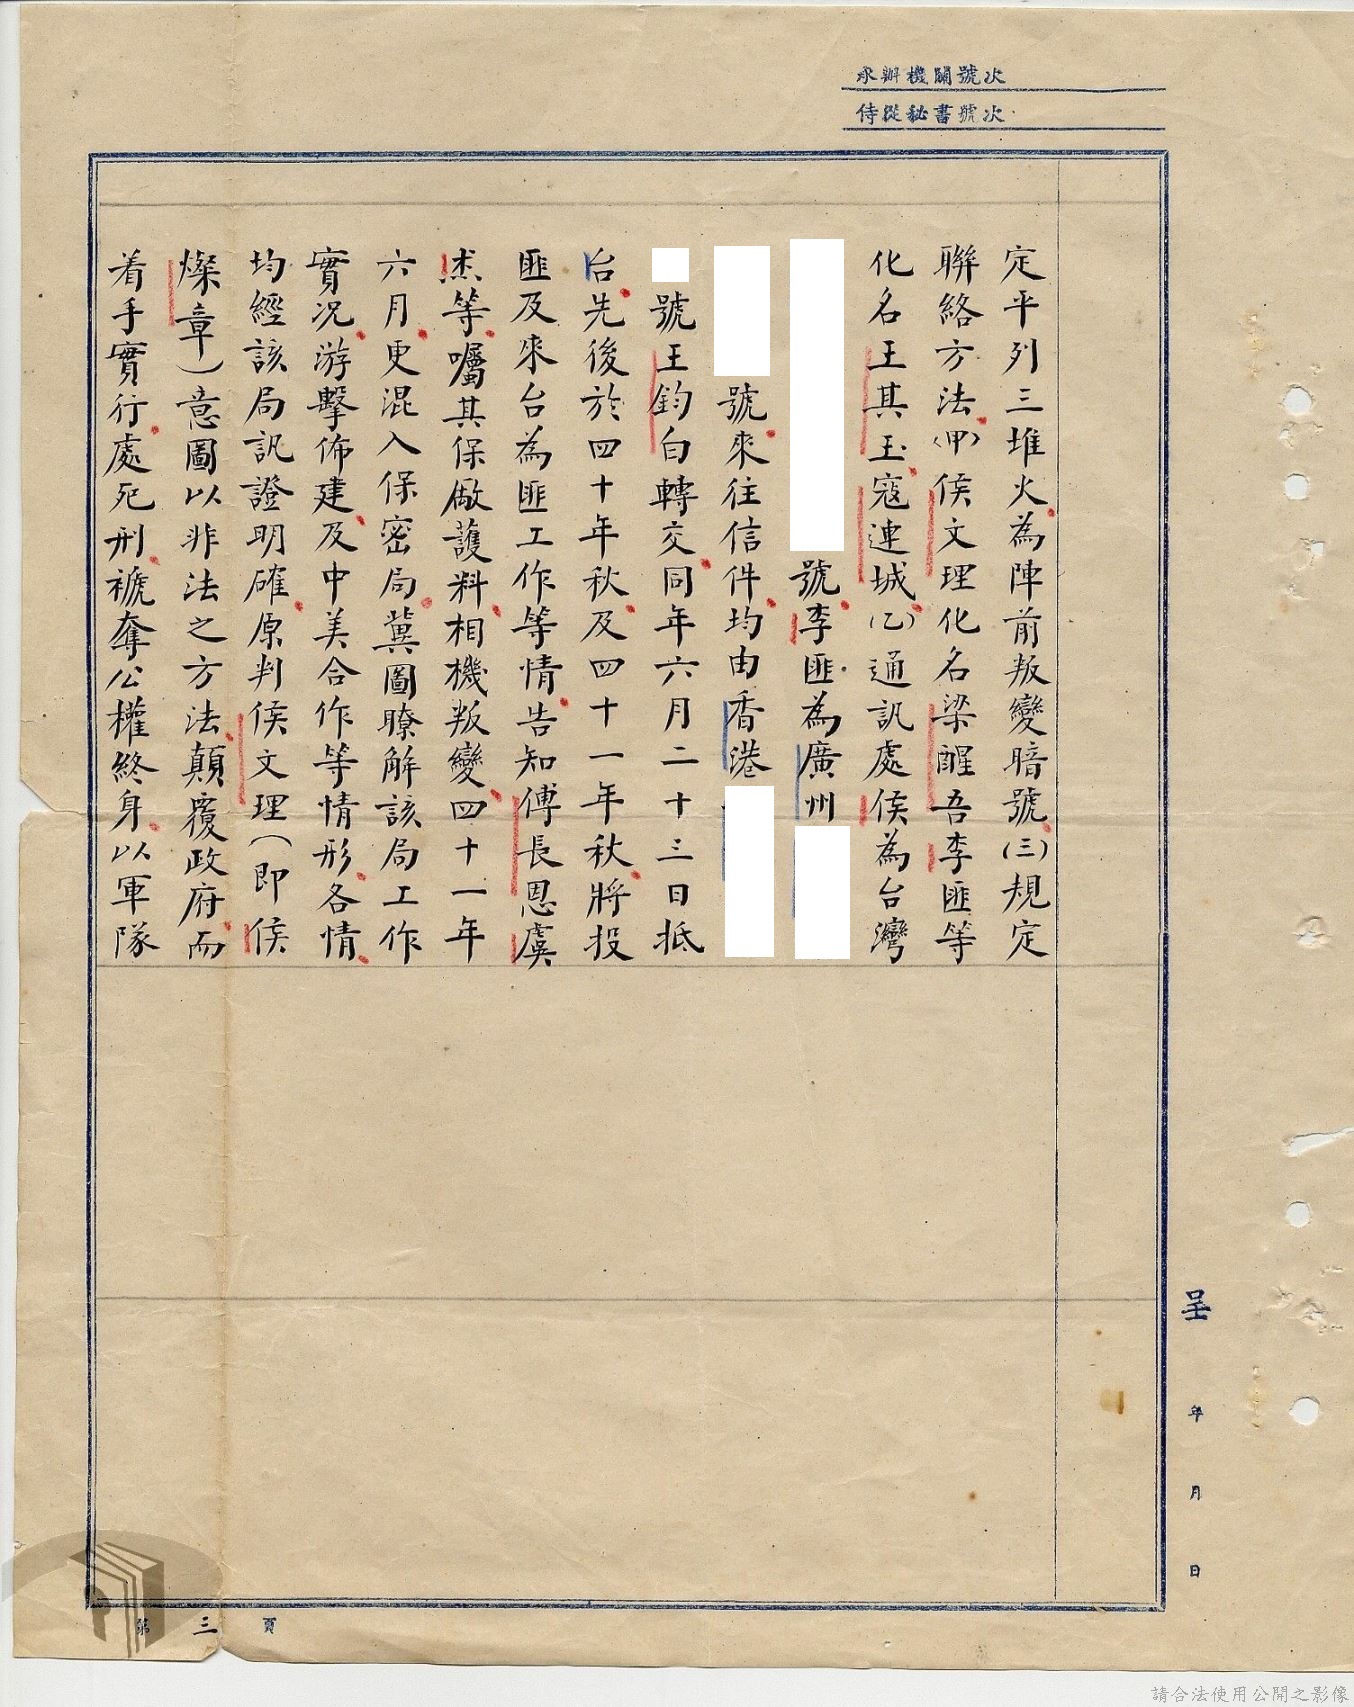 承辦機關號次
侍從秘書號次
定平列三堆火為陣前叛變暗號(三)規定
聯絡方法(甲)侯文理化名梁醒吾李匪等
化名王其玉寇連城(乙)通訊處侯為台灣
號李匪為廣州
號來往信件均由香港
號王鈞白轉交同年六月二十三日抵
台先後於四十年秋及四十一年秋將投
匪及來台為匪工作等情告知傅長恩虞
杰等囑其保廠護料相機叛變四十一年
六月更混入保密局冀圖瞭解該局工作
實況游擊佈建及中美合作等情形各情
均經該局訊證明確原判侯文理(即侯
燦章)意圖以非法之方法顛覆政府而
着手實行處死刑褫奪公權終身以軍隊
呈 年 月 日
第三頁
請合法使用公開之影像